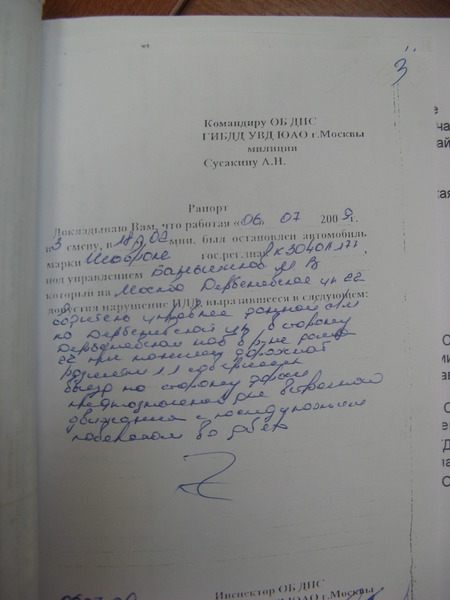 3
Командиру ОБ ДПС
ГИБДД УВД ЮАО г.Москвы
милиции
Сусакину А.Н.
Рапорт
Докладываю Вам, что работая «06» 07 2009г.
в 3 смену, в 18 ч 02 мин. был остановлен автомобиль
марки Шевроле гос.рег.знак К304ОА177
под управлением М В
который на Москва Дербеневская ул 22
допустил нарушение ПДД, выразившееся в следующем:
водитель управляя данной а/м
по Дербеневской ул в сторону
Дербеневской наб в р-не дома
22 при наличии дорожной
разметки 1.1 совершил
выезд на сторону дороги
предназначенной для встречной
движения с последующим
поворотом во двор
Инспектор ОБ ДПС
УВД ЮАО г.Москвы